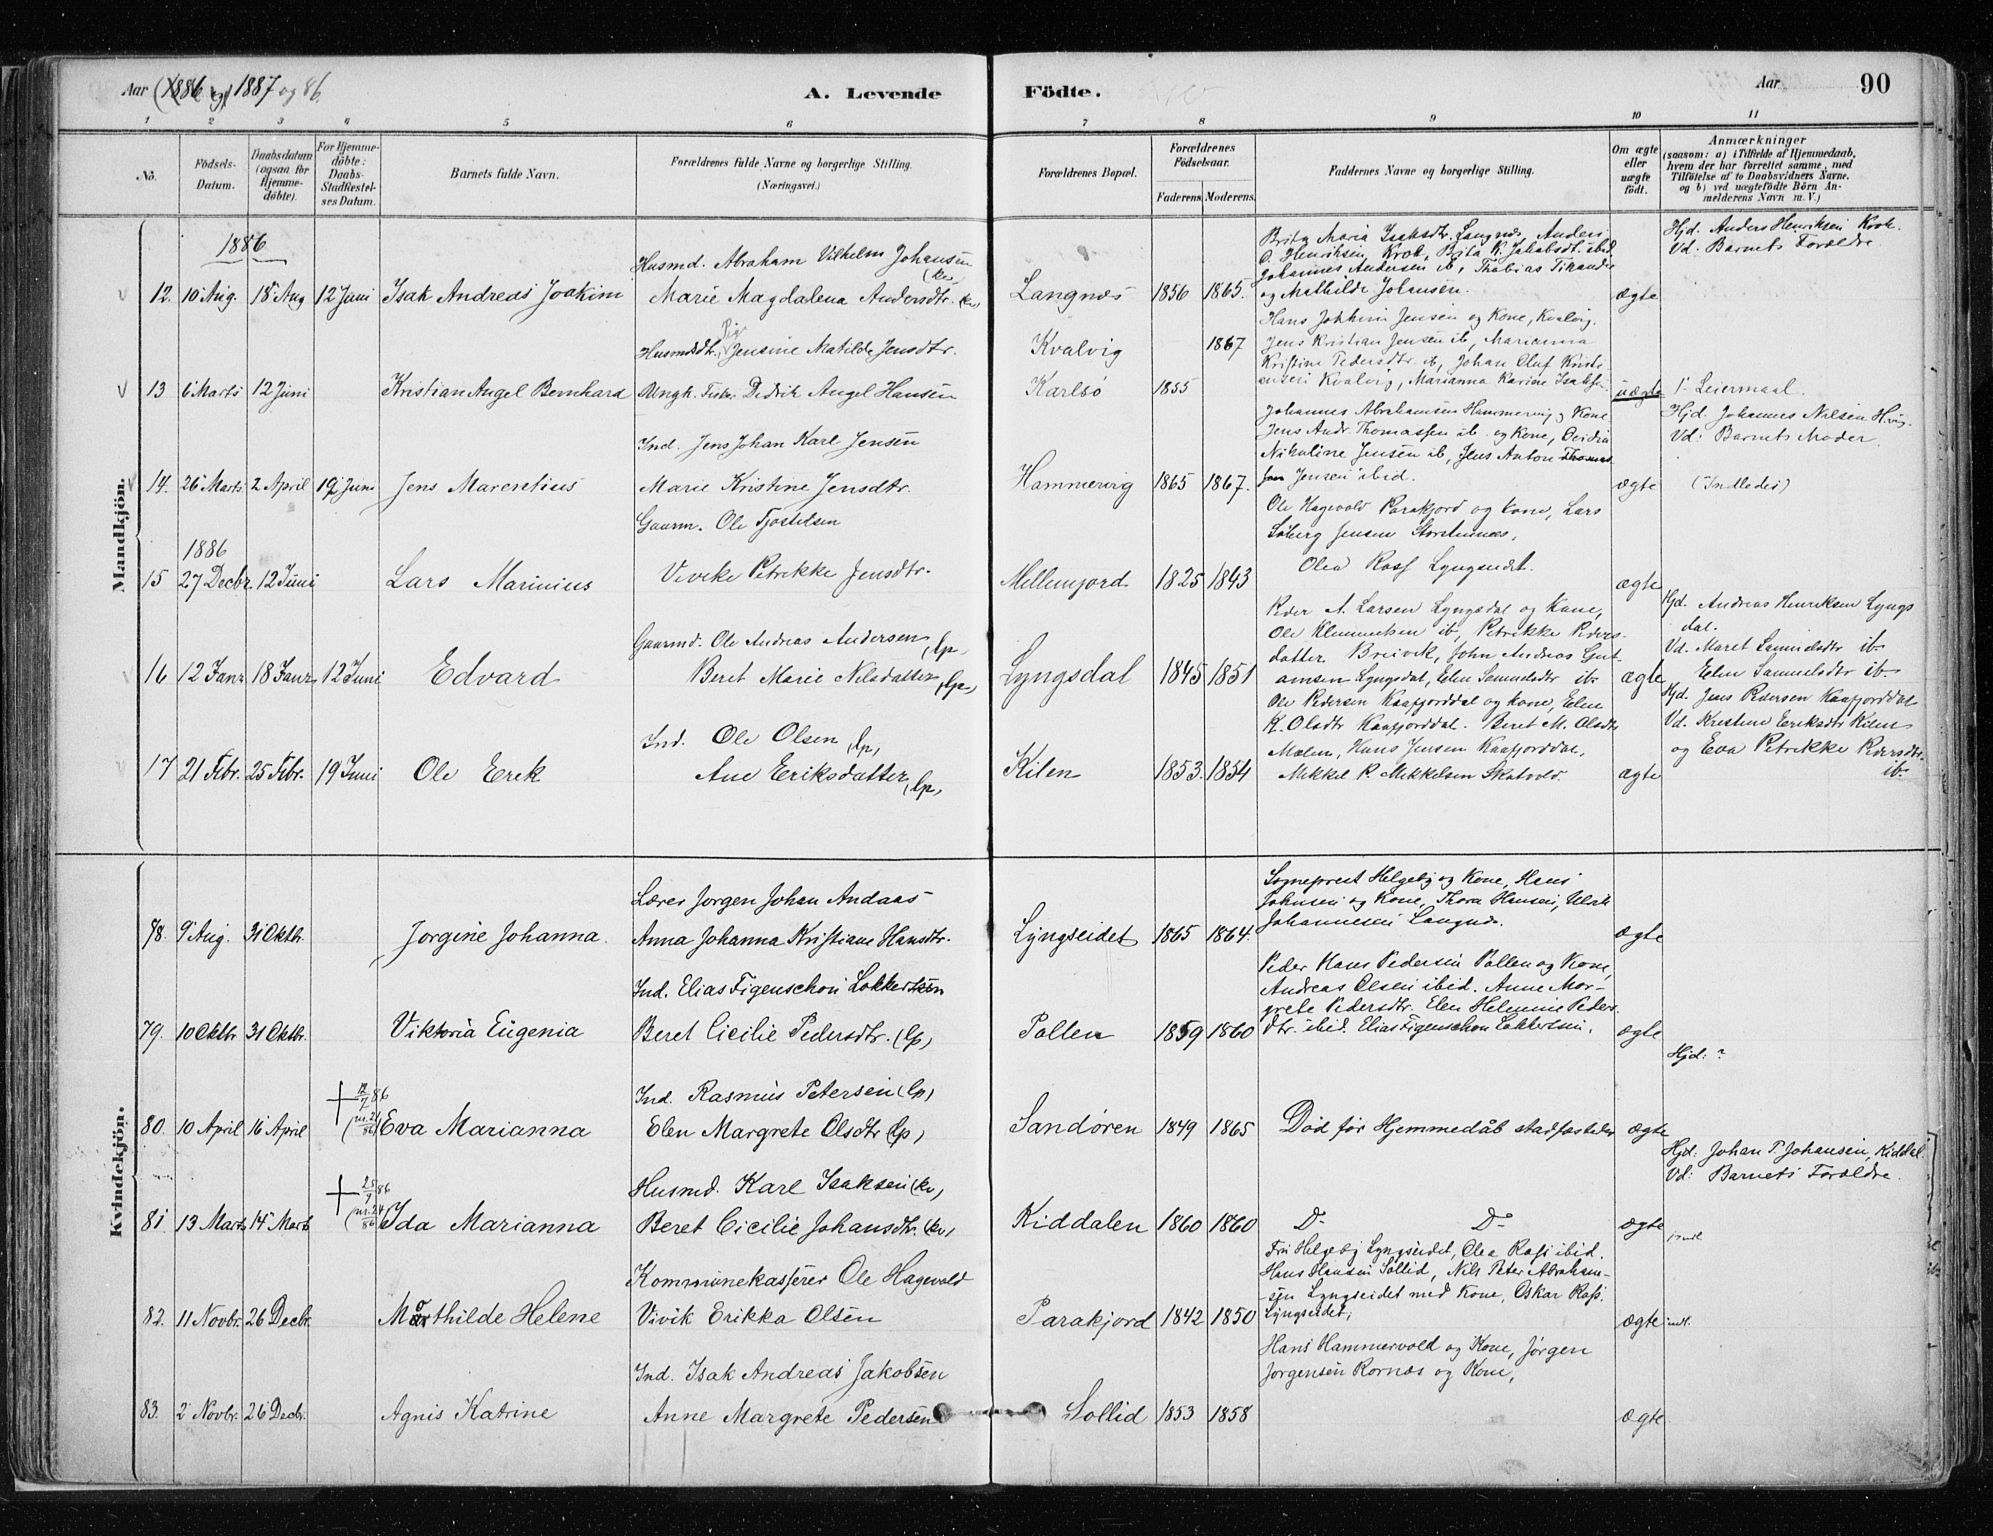 Aar (1886 og) 1887 og 86.
A. Levende Födte.
Aar
90
1 2 3 6 5 6 7 8 9 10 11
No.
Födsels-Datum.
Daabsdatum (ogsaa for Hjemmedöbte).
For Hjemmedöbte: Daabs-Stadfæstelses Datum.
Barnets fulde Navn.
Forældrenes fulde Navne og borgerlige Stilling. (Næringsvei.)
Forældrenes Bopæl.
Forældrenes Födselsaar.
Faderens. Moderens.
Faddernes Navne og borgerlige Stilling.
Om ægte eller uægte födt.
Anmærkninger
(saasom: a) i Tilfælde af Hjemmedaab, hvem der har forrettet samme, med Tilföielse af to Daabsvidners Navne, og b) ved uægtefödte Börn Anmelderens Navn m. V.)
Mandkjön.
1886
12. 10 Aug. 18 Aug 12 Juni Isak Andreas Joakim
Husmd. Abraham Vilhelm Johansen (kv)
Marie Magdalena Andersdtr. (kv)
Langnæs 1856 1865.
Brita Maria Isaksdtr. Langnæs, Anders
O. Henriksen Krok, Brita K. Jakobsdt. ibid
Johannes Andersen ib, Thobias
og Mathilde Johansen.
ægte
Hjd. Anders Henriksen Krok.
Vd. Barnets Forældre.
13 6 Marts 12 Juni Kristian Angel Bernhard
Husmdsdtr. Pige Jensine Matilde Jensdtr.
Ungk. Fisker Didrik Angel Hansen
Kvalvig 1867
Karlsö 1855
Hans Jokkim Jensen og Kone, Kvalvig.
Jens Kristian Jensen ib, Marianna
Kristine Pedersdtr ib, Johan Oluf Kristiensen Kvalvig, Marianna Karine
uægte
1' Leiermaal.
Hjd. Johannes Nilsen
Vd: Barnets Moder.
14. 26 Marts 2 April 19 Juni Jens Marentius
Ind. Jens Johan Karl Jensen
Marie Kristine Jensdtr.
Hammervig 1865 1867.
Johannes Abrahamsen Hammervig og Kone
Jens Andr. Thomassen ib. og Kone,
Nikoline Jensen ib, Jens Anton Thomas
sen Jensen ibid.
ægte
(Indledes)
1886
15 27 Decbr. 12 Juni Lars Marinius
Gaarm. Ole Tjostelsen
Vivike Petrikke Jensdtr.
Mellemjord 1825 1843
Ole Hagevold Parakjord og kone, Lars
Söberg Jensen Storstennæs,
Olea Ross Lyngseidet.
ægte
16 12 Janr 18 Janr 12 Juni Edvard
Gaarmd. Ole Andreas Andersen, (lp)
Beret Marie Nilsdatter, (lp)
Lyngsdal 1845 1851
Peder A. Larsen Lyngsdal og Kone,
Ole Klemmetsen ib, Petrikke Peders-
datter Breivik, John Andreas Gut-
amsen Lyngsdal, Elen Samuelsdtr ib
ægte
Hjd. Andreas Henriksen Lyngs
dal.
Vd. Maret Samuelsdtr ib
Elen Samuelsdtr ib
17 21 Febr. 25 Febr. 19 Juni Ole Erik
Ind. Ole Olsen (lp)
Ane Eriksdatter, (lp)
Kilen 1853. 1854
Ole Pedersen Kaafjorddal og kone, Elen
K. Olsdtr Kaafjorddal. Beret M. Olsdtr
Mælen, Hans Jensen Kaafjorddal,
Mikkel P. Mikkelsen Skatvold.
ægte
Hjd. Jens Pedersen Kaafjorddal
Vd. Kristine Eriksdtr Kilen
og Eva Petrikke Pedersdtr.
ib.
Kvindekjön.
78. 9 Aug. 31 Oktbr. Jorgine Johanna.
Lærer Jorgen Johan Andaas
Anna Johanna Kristiane Hansdtr.
Lyngseidet 1865 1864.
Sogneprest Helgeby og Kone, Hans
Johnsen og Kone, Thora Hansen, Ulrik
Johannesen Langnæs.
ægte
79. 10 Oktbr. 31 Oktbr. Viktoria Eugenia
Ind. Elias Figenschou Lokkertsen
Beret Cicilie Pedersdtr. (lp)
Pollen 1859 1860
Peder Hans Pedersen Pollen og Kone,
Andreas Olsen ibid. Anne Mar-
grete Pedersdtr. Elen Helmine Peders
dtr. ibid. Elias Figenschou Lokkertsen.
ægte
80. 10 April 16 April † 12/7 86 (nr. 24/86) Eva Marianna
Ind. Rasmus Petersen (lp)
Elen Margrete Olsdtr (lp)
Sandören 1849 1865
Död för Hjemmedåb stadfæstedes
ægte
Hjd: ?
81 13 Marts 14 Marts † 25/7 86 (nr. 24/86) Ida Marianna
Husmd. Karl Isaksen (kv)
Beret Cicilie Johansdtr. (kv)
Kiddalen 1860 1860
D- D-
ægte
Hjd: Johan P. Johansen, Kiddal.
Vd: Barnets Forældre.
82. 11 Novbr. 26 Decbr. Mathilde Helene
Kommunekasserer Ole Hagevold
Vivik Erikka Olsen
Parakjord 1842 1850
Fru Helgeby Lyngseidet, Olea Ross ibid.
Hans Hansen Sollid, Nils Peter Abraham-
-sen Lyngseidet med Kone, Oskar Ross.
Lyngseidet,
ægte indl.
83. 2 Novbr. 26 Decbr. Agnis Katrine
Ind. Isak Andreas Jakobsen
Anne Margrete Pedersen
Sollid 1853 1858
Hans Hammervold og Kone, Jørgen
Jorgensen Rornæs og Kone,
ægte